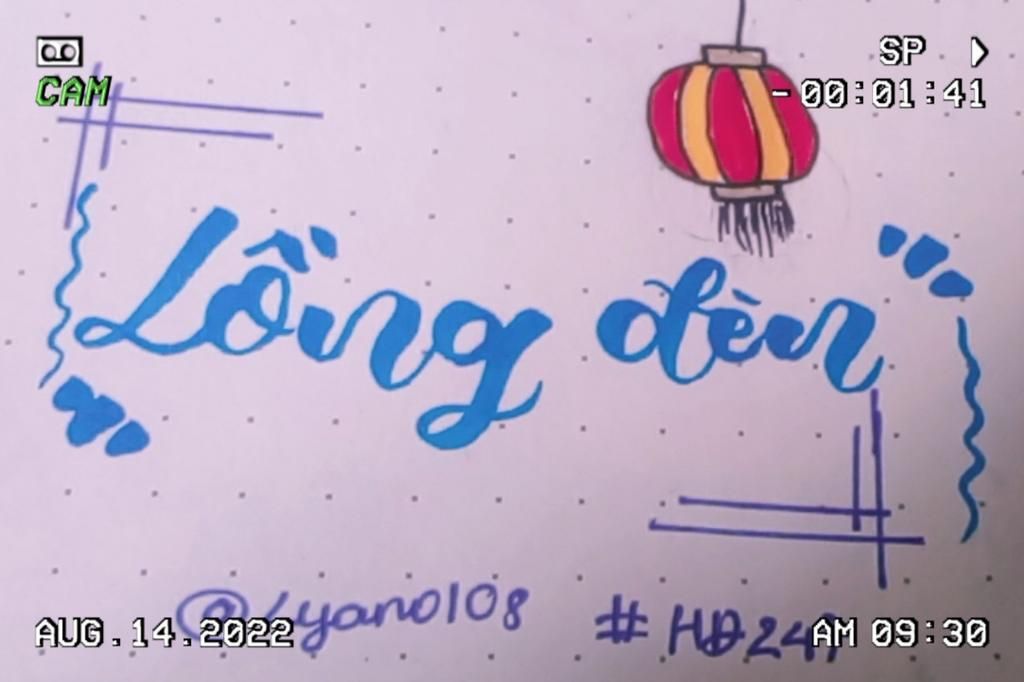 SP
CAM
-00:01:41
Lồng đèn
@Lyano108
AUG.14.2022
AM 09:30